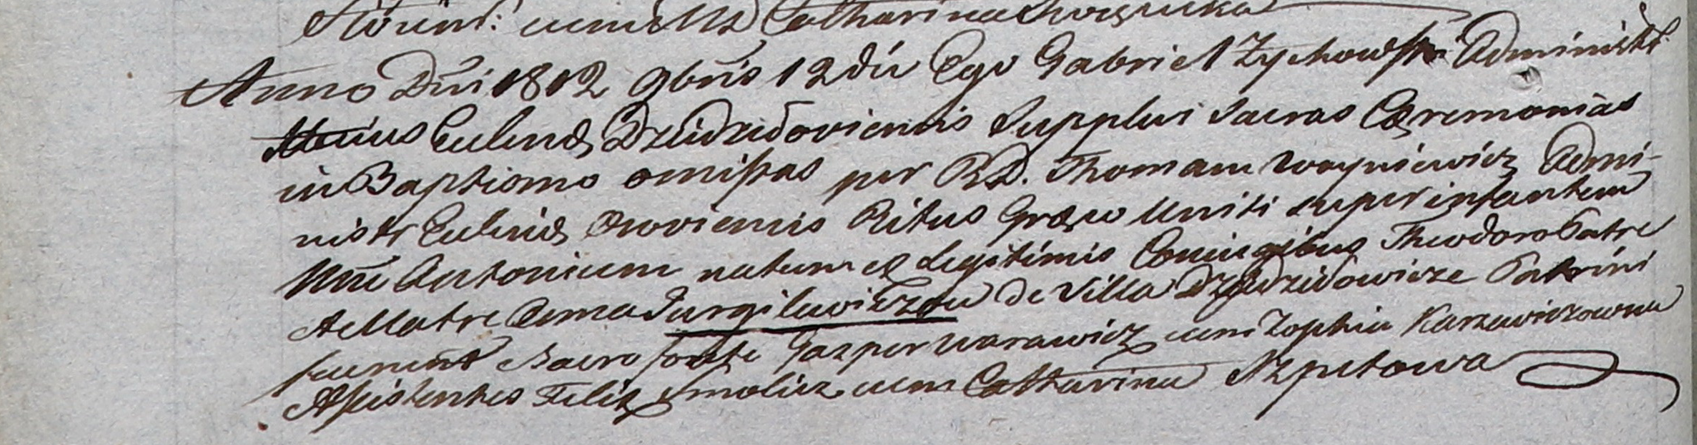 cum Catharina
Anno Dñi 1812 9bris 12 die Ego Gabriel Zychowski Administr
Huius Ecclesiæ Dziedziłoviensis Supplevi Sacras Cæremonias
in Baptismo omissas per R.D. Thomam Woyniewicz Admi-
nistr Ecclesiæ Ritus Græco Uniti super infantem
Nñe Antonium natum ex Legitimis Coniugibus Theodoro Patre
et Matre Anna Jurgilewiczow de Villa Dziedziłowicze Patrini
fuerunt Sacro fonte Gasper Warawicz cum Zophia Karzewiczowna
Assistentes Felix Smolicz cum Catharina Szputowa